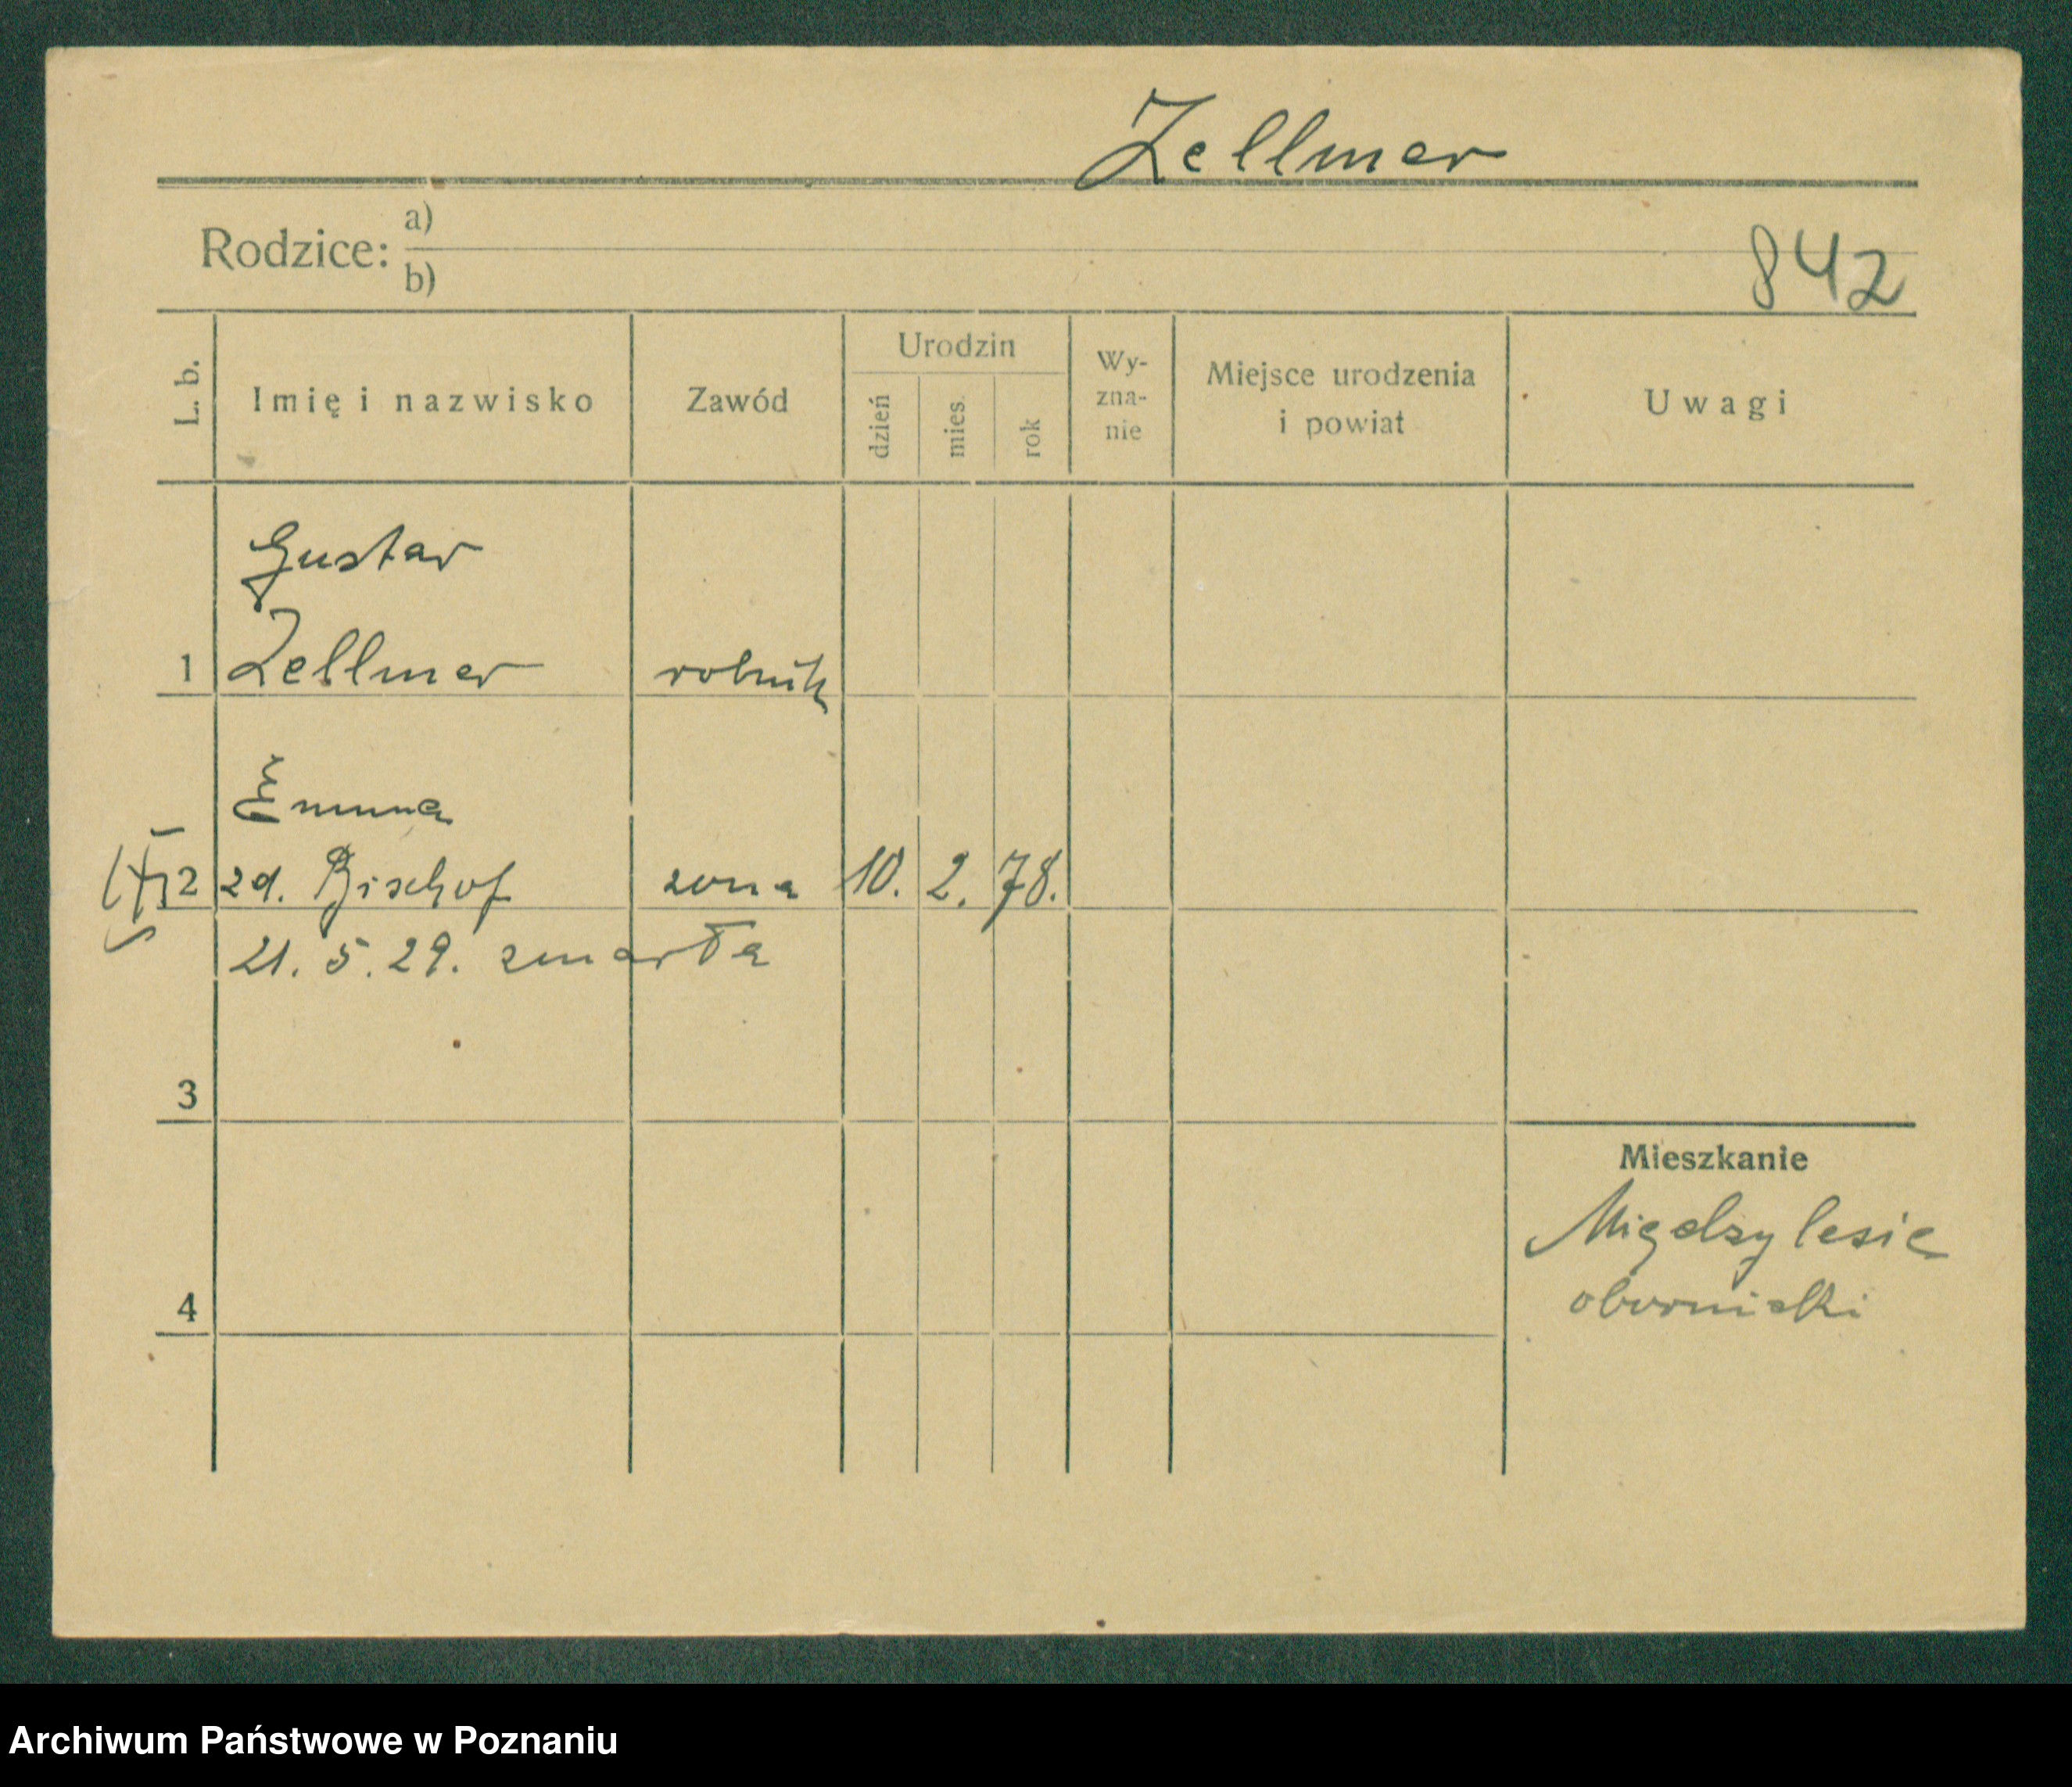 Zellmer
Rodzice: a)
b)
842
L. b.
Imię i nazwisko
Zawód
Urodzin
dzień
mies.
rok
Wy-
zna-
nie
Miejsce urodzenia
i powiat
Uwagi
Gustav
1 Zellmer rolnik
Emma
2 zd. Bischof zona 10. 2. 78.
21. 5. 29. zmarła
3
Mieszkanie
Międzylesie
obornicki
4
Archiwum Państwowe w Poznaniu